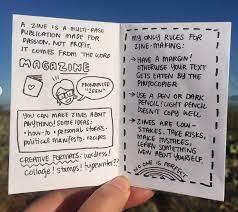 A ZINE IS A MULTI-PAGE
PUBLICATION MADE FOR
PASSION, NOT PROFIT.
IT COMES FROM THE WORD
MAGAZINE
PRONOUNCED
"ZEEN"
YOU CAN MAKE ZINES ABOUT
ANYTHING! SOME IDEAS:
• how-to • personal stories •
political manifesto • recipes
CREATIVE FORMATS: handwritten!
collage! stamps! typewriter??
MY ONLY RULES FOR
ZINE-MAKING:
→ HAVE A MARGIN!
OTHERWISE YOUR TEXT
GETS EATEN BY THE
PHOTOCOPIER
→ USE A PEN OR DARK
PENCIL! LIGHT PENCIL
DOESN'T COPY WELL
→ ZINES ARE LOW-
STAKES. TAKE RISKS,
MAKE MISTAKES,
LEARN SOMETHING
NEW ABOUT YOURSELF.
NO ONE IS PERFECT